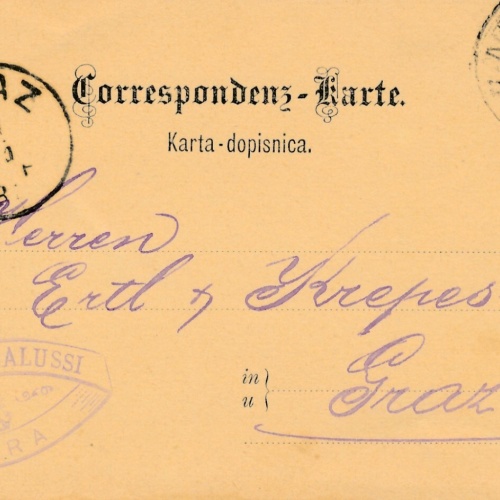 AZ
Correspondenz-Karte.
Karta-dopisnica.
Herren
Ertl & Krepes
in
u
Graz
ALUSSI
RA